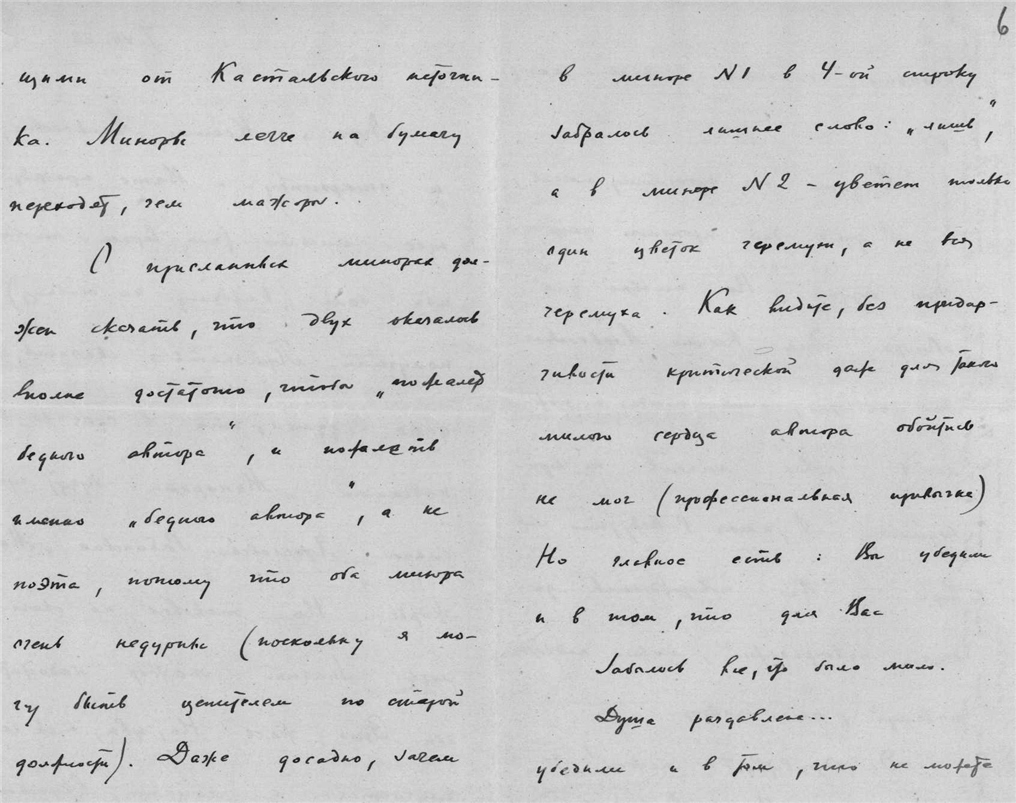 щими от Кастальского источни-
ка. Миноры легче на бумагу
переходят, чем мажоры.
О присланных минорах дол-
жен сказать, что двух оказалось
вполне достаточно, чтобы „пожалеть
бедного автора“, и пожалеть
именно „бедного автора“, а не
поэта, потому что оба минора
очень недурны (поскольку я мо-
гу быть ценителем по старой
должности). Даже досадно, зачем
6
в миноре №1 в 4-ой строку
забралось лишнее слово: „лишь“,
а в миноре №2 – цветет только
один цветок черемухи, а не вся
черемуха. Как видите, без придир-
чивости критической даже для такого
милого сердца автора обойтись
не мог (профессиональная привычка)
Но главное есть: Вы убедили
и в том, что для Вас
Забылось все, что было мило.
Душа раздавлена...
убедили и в том, что не можете